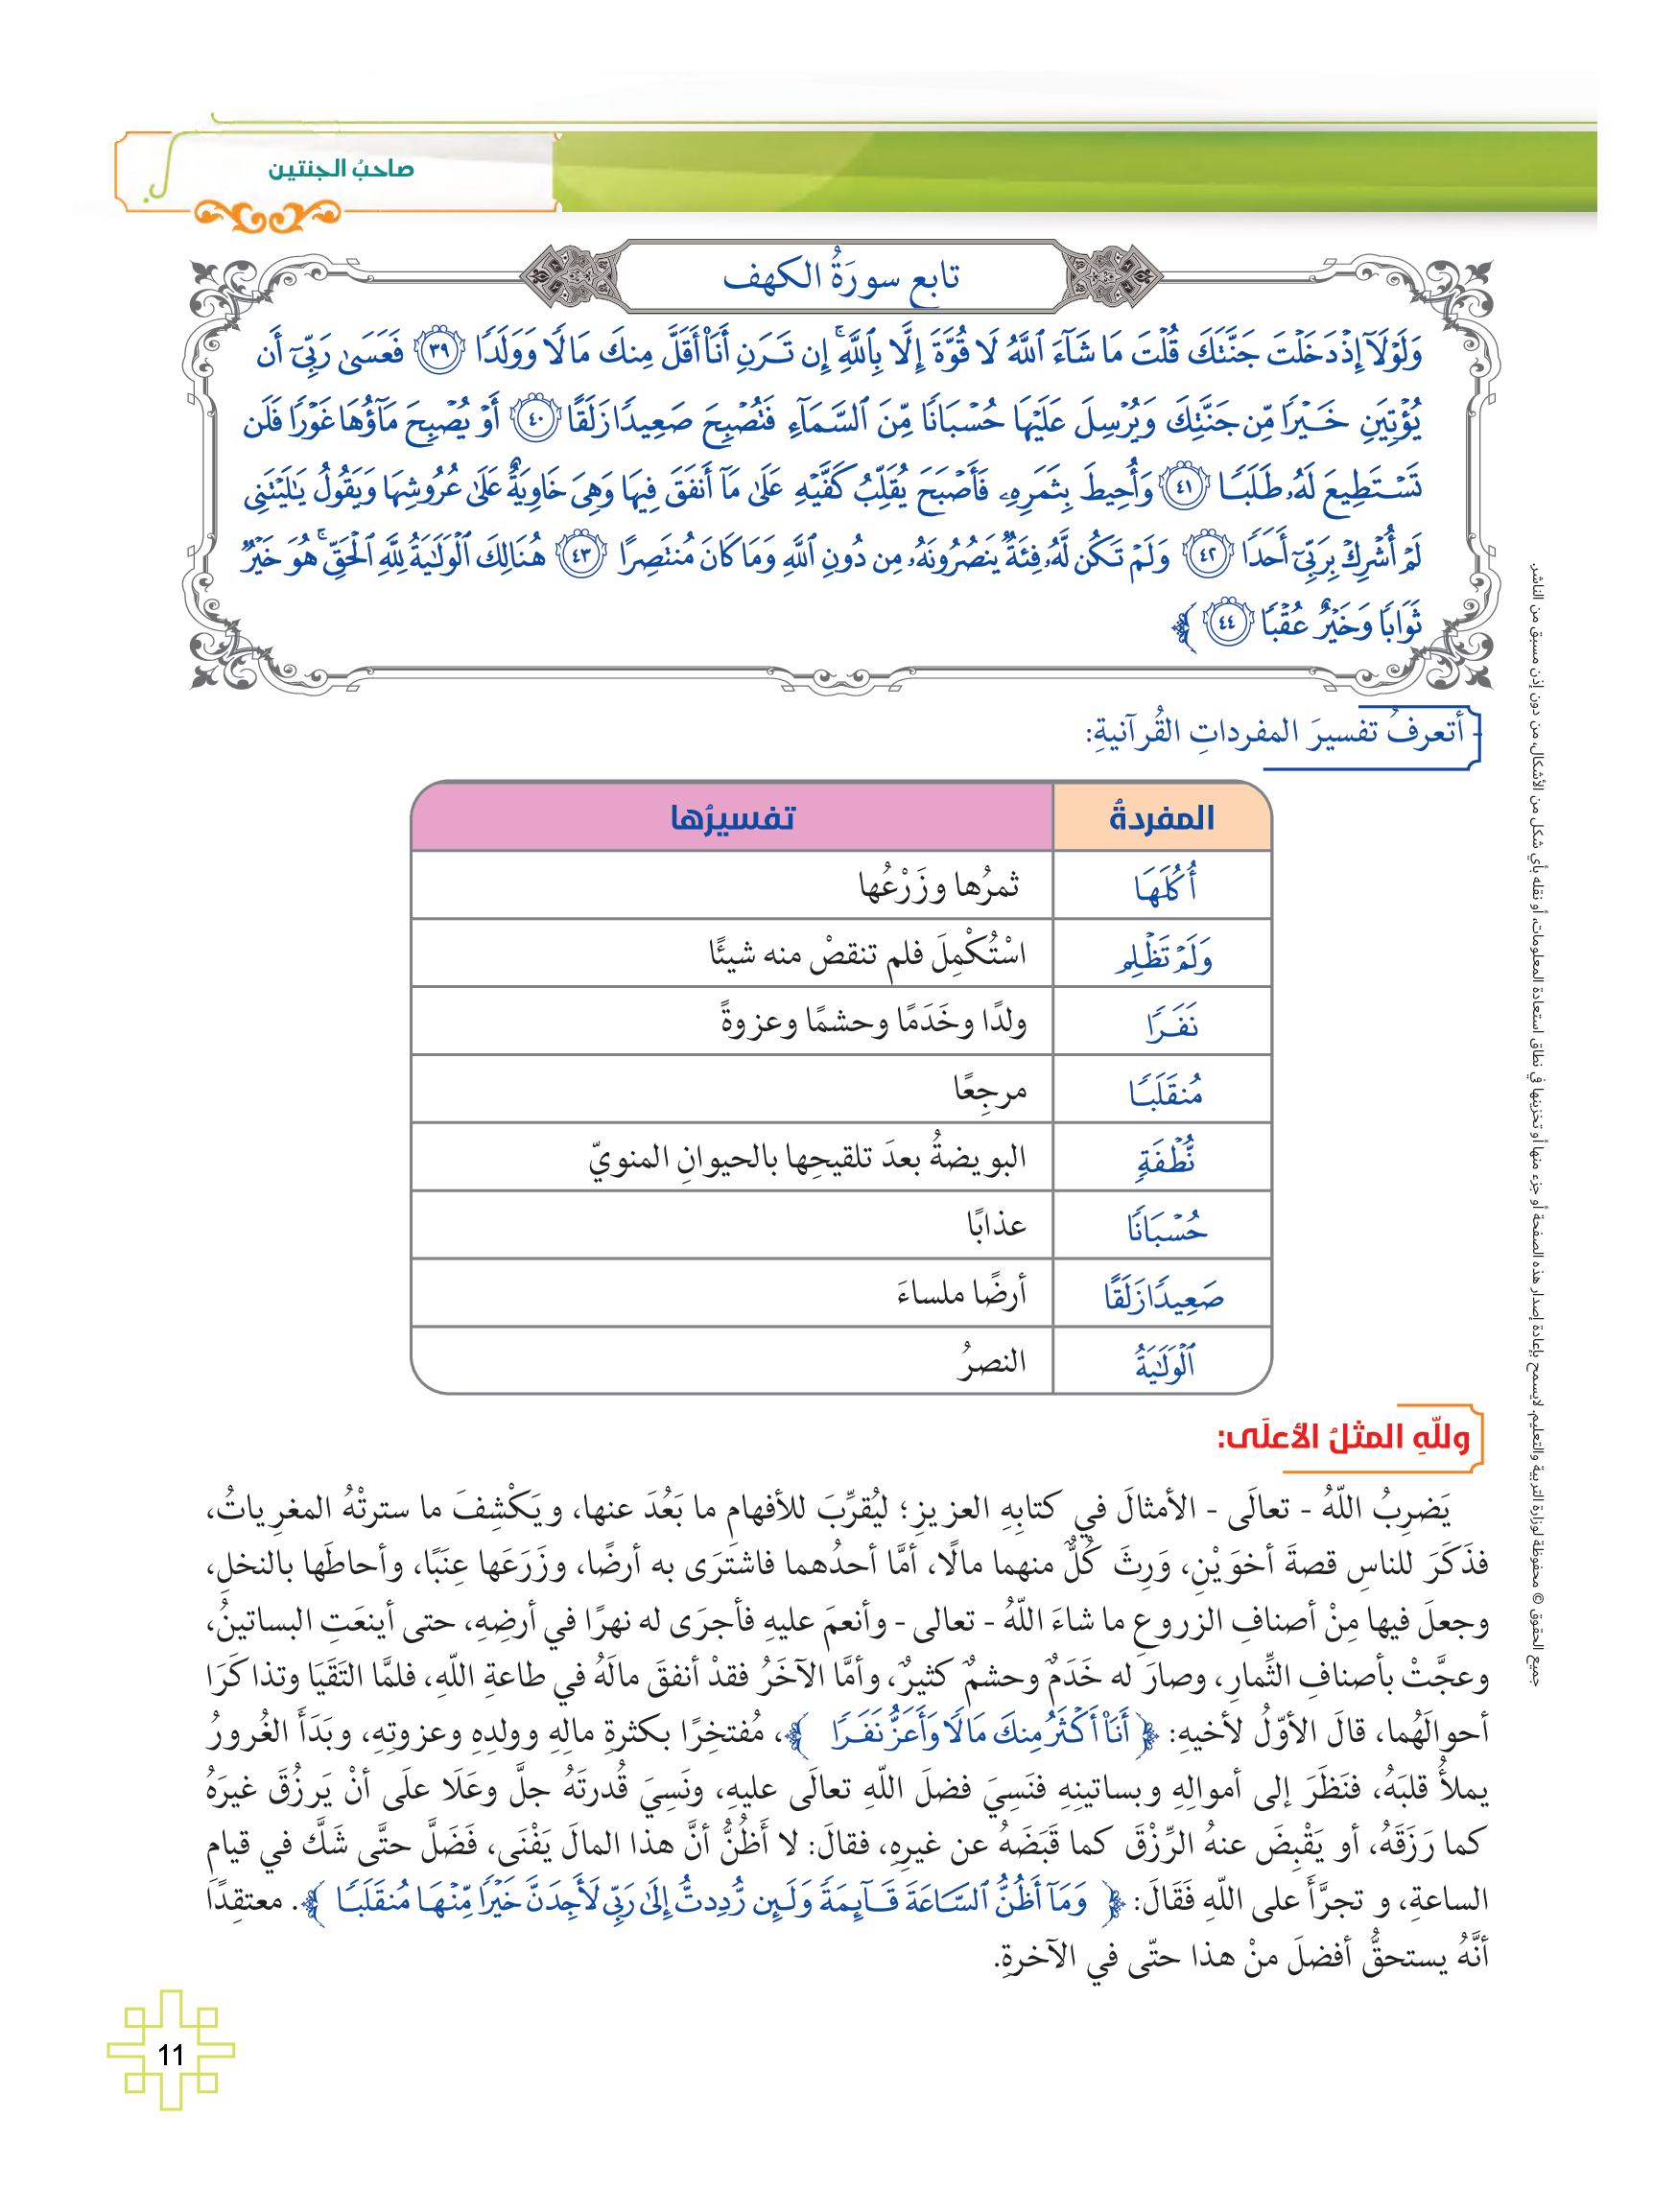 صاحبُ الجنتين
تابع سورَةُ الكهف
وَلَوۡلَآ إِذۡ دَخَلۡتَ جَنَّتَكَ قُلۡتَ مَا شَآءَ ٱللَّهُ لَا قُوَّةَ إِلَّا بِٱللَّهِۚ إِن تَرَنِ أَنَا۠ أَقَلَّ مِنكَ مَالٗا وَوَلَدٗا ٣٩ فَعَسَىٰ رَبِّيٓ أَن
يُؤۡتِيَنِ خَيۡرٗا مِّن جَنَّتِكَ وَيُرۡسِلَ عَلَيۡهَا حُسۡبَانٗا مِّنَ ٱلسَّمَآءِ فَتُصۡبِحَ صَعِيدٗا زَلَقًا ٤٠ أَوۡ يُصۡبِحَ مَآؤُهَا غَوۡرٗا فَلَن
تَسۡتَطِيعَ لَهُۥ طَلَبٗا ٤١ وَأُحِيطَ بِثَمَرِهِۦ فَأَصۡبَحَ يُقَلِّبُ كَفَّيۡهِ عَلَىٰ مَآ أَنفَقَ فِيهَا وَهِيَ خَاوِيَةٌ عَلَىٰ عُرُوشِهَا وَيَقُولُ يَٰلَيۡتَنِي
لَمۡ أُشۡرِكۡ بِرَبِّيٓ أَحَدٗا ٤٢ وَلَمۡ تَكُن لَّهُۥ فِئَةٞ يَنصُرُونَهُۥ مِن دُونِ ٱللَّهِ وَمَا كَانَ مُنتَصِرًا ٤٣ هُنَالِكَ ٱلۡوَلَٰيَةُ لِلَّهِ ٱلۡحَقِّۚ هُوَ خَيۡرٞ
ثَوَابٗا وَخَيۡرٌ عُقۡبٗا ٤٤ ﴾
- أتعرفُ تفسيرَ المفرداتِ القُرآنيةِ:
المفردةُ تفسيرُها
أُكُلَهَا ثمرُها وزَرْعُها
وَلَمۡ تَظۡلِم اسْتُكْمِلَ فلم تنقصْ منه شيئًا
نَفَرٗا ولدًا وخَدَمًا وحشمًا وعزوةً
مُنقَلَبٗا مرجِعًا
نُّطۡفَةٖ البويضةُ بعدَ تلقيحِها بالحيوانِ المنويّ
حُسۡبَانٗا عذابًا
صَعِيدٗا زَلَقًا أرضًا ملساءَ
ٱلۡوَلَٰيَةُ النصرُ
وللّهِ المثلُ الأعلَى:
يَضرِبُ اللّهُ - تعالَى - الأمثالَ في كتابِهِ العزيزِ؛ ليُقرِّبَ للأفهامِ ما بَعُدَ عنها، ويَكْشِفَ ما سترتْهُ المغرِياتُ،
فذَكَرَ للناسِ قصةَ أخوَيْنِ، وَرِثَ كُلٌّ منهما مالًا، أمَّا أحدُهما فاشتَرَى به أرضًا، وزَرَعَها عِنَبًا، وأحاطَها بالنخلِ،
وجعلَ فيها مِنْ أصنافِ الزروعِ ما شاءَ اللّهُ - تعالى - وأنعمَ عليهِ فأجرَى له نهرًا في أرضِهِ، حتى أينعَتِ البساتينُ،
وعجَّتْ بأصنافِ الثِّمارِ، وصارَ له خَدَمٌ وحشمٌ كثيرٌ، وأمَّا الآخَرُ فقدْ أنفقَ مالَهُ في طاعةِ اللّهِ، فلمَّا التَقَيَا وتذاكَرَا
أحوالَهُما، قالَ الأوّلُ لأخيهِ: ﴿أَنَا۠ أَكۡثَرُ مِنكَ مَالٗا وَأَعَزُّ نَفَرٗا ﴾، مُفتخِرًا بكثرةِ مالِهِ وولدِهِ وعزوتِهِ، وبَدَأَ الغُرورُ
يملأُ قلبَهُ، فنَظَرَ إلى أموالِهِ وبساتينِهِ فنَسِيَ فضلَ اللّهِ تعالَى عليهِ، ونَسِيَ قُدرتَهُ جلَّ وعَلَا علَى أنْ يَرزُقَ غيرَهُ
كما رَزَقَهُ، أو يَقْبِضَ عنهُ الرِّزْقَ كما قَبَضَهُ عن غيرِهِ، فقالَ: لا أَظُنُّ أنَّ هذا المالَ يَفْنَى، فَضَلَّ حتَّى شَكَّ في قيامِ
الساعةِ، و تجرَّأَ على اللّهِ فَقَالَ: ﴿ وَمَآ أَظُنُّ ٱلسَّاعَةَ قَآئِمَةٗ وَلَئِن رُّدِدتُّ إِلَىٰ رَبِّي لَأَجِدَنَّ خَيۡرٗا مِّنۡهَا مُنقَلَبٗا ﴾. معتقِدًا
أنَّهُ يستحقُّ أفضلَ منْ هذا حتّى في الآخرةِ.
جميع الحقوق © محفوظة لوزارة التربية والتعليم. لايسمح بإعادة إصدار هذه الصفحة أو جزء منها أو تخزينها في نطاق استعادة المعلومات، أو نقله بأي شكل من الأشكال، من دون إذن مسبق من الناشر.
11